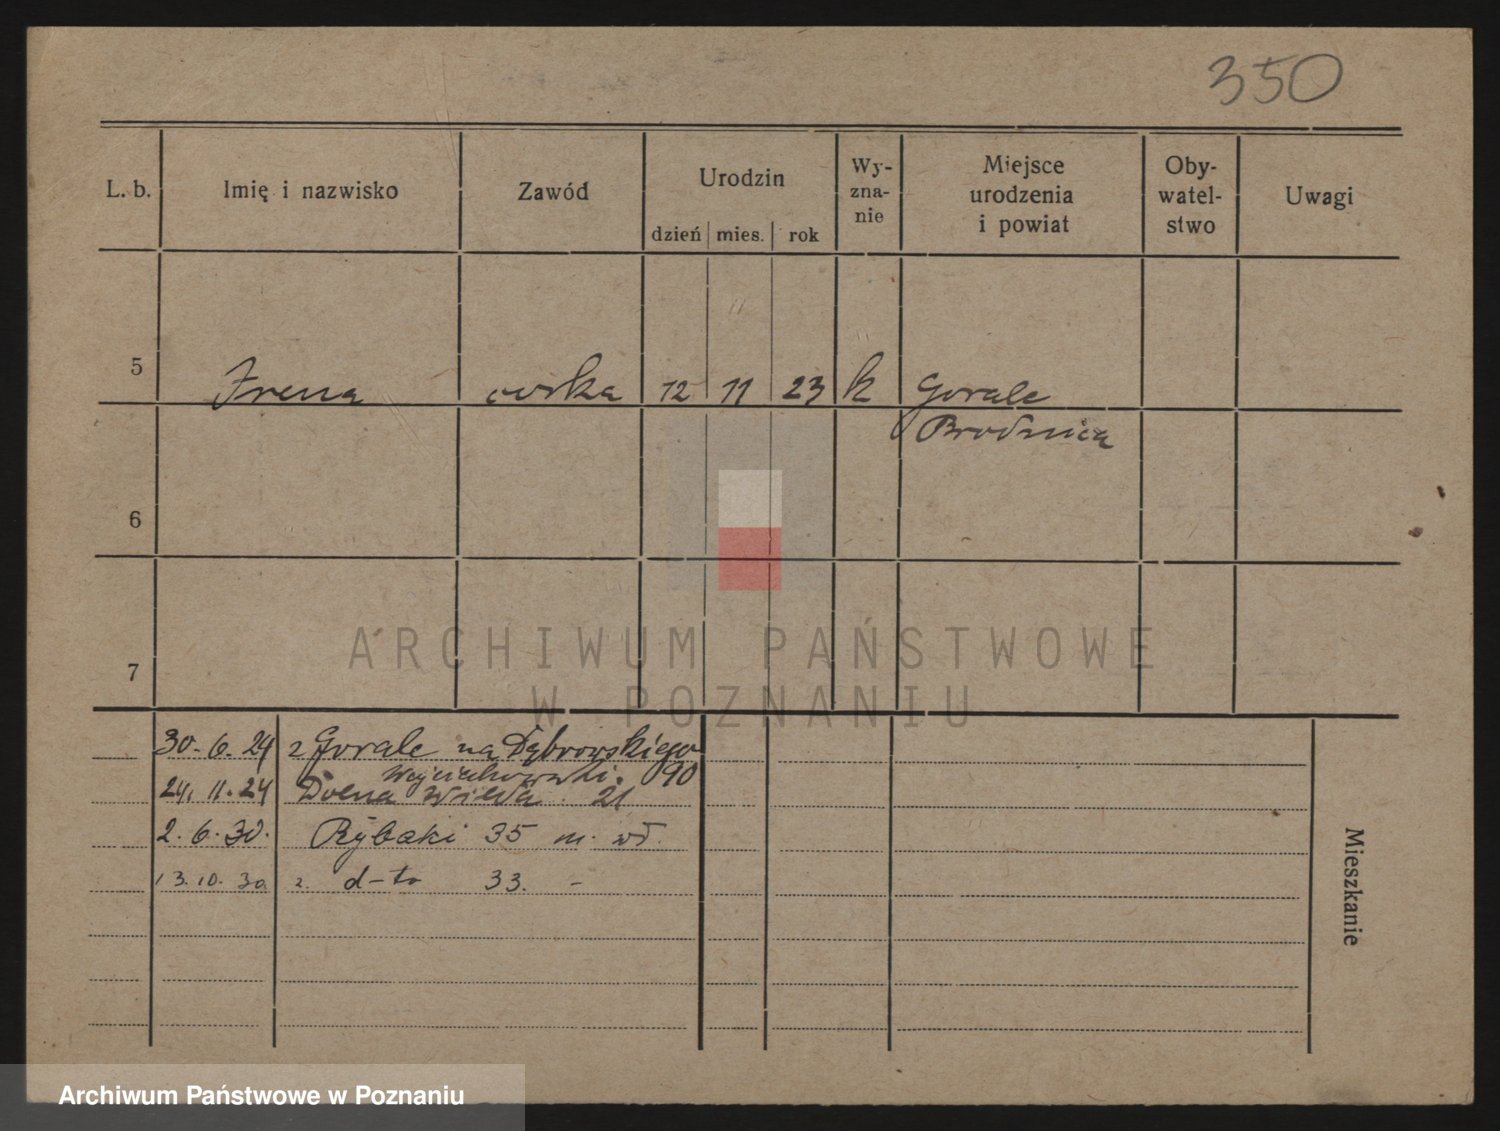 350
L. b. Imię i nazwisko Zawód Urodzin dzień mies. rok Wy-zna-nie Miejsce urodzenia i powiat Oby-watel-stwo Uwagi
5 Irena córka 12 11 23 k Gorale
Brodnica
6
7
ARCHIWUM PAŃSTWOWE
W POZNANIU
30.6.24 z Gorale na Dąbrowskiego 90
Wojciechowski.
24.11.24 Dolna Wilda 21
2.6.30. Rybaki 35 m. wł.
13.10.30. z. d-to 33. -
Mieszkanie
Archiwum Państwowe w Poznaniu